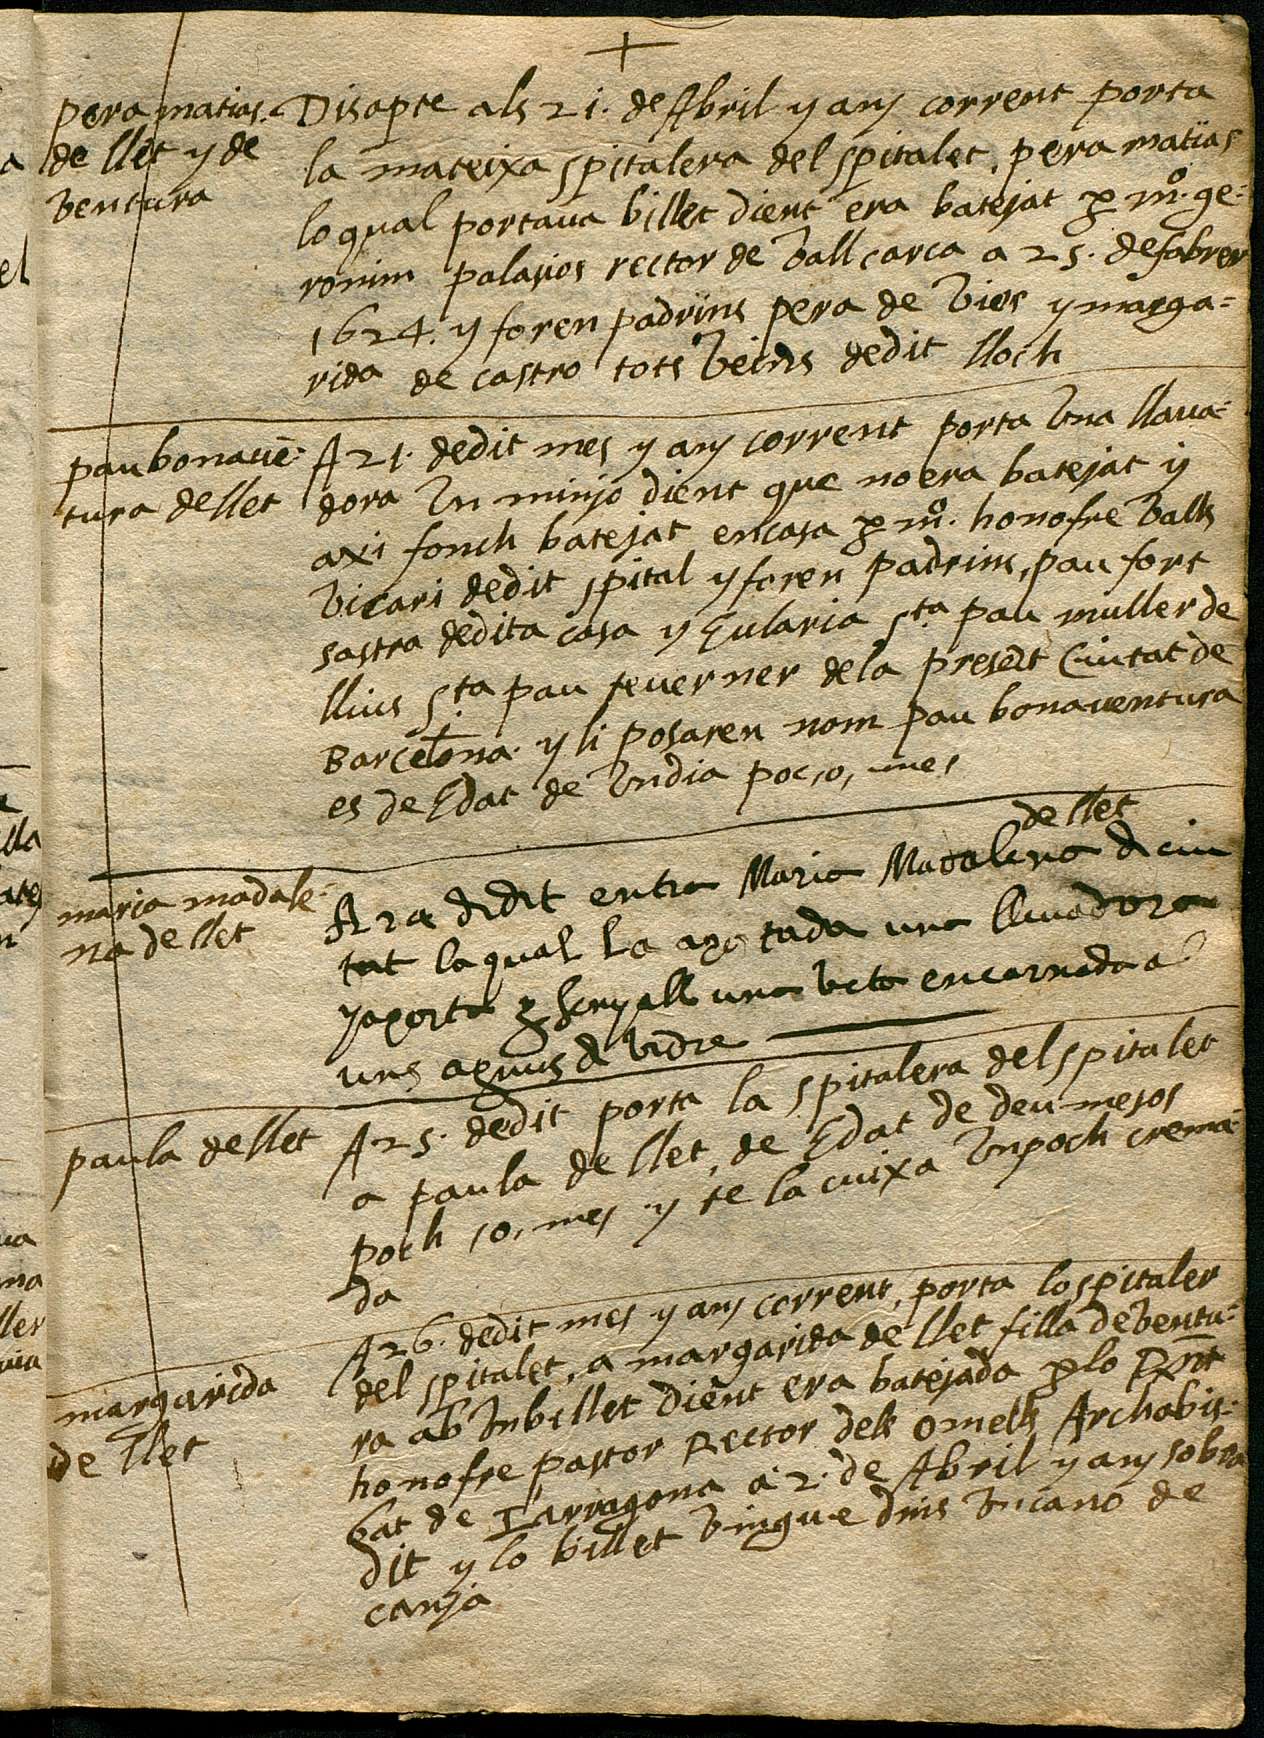 +
pera matias
de llet y de
ventura
Disapte als 21. de Abril y any corrent porta
la mateixa spitalera del spitalet, pera matias
lo qual portaua billet dient era batejat p mº. ge=
ronim palasios rector de vallcarca a 25. de febrer
1624. y foren padrins pera de vies y marga=
rida de castro tots veins dedit lloch
pau bonauē=
tura de llet
A 21. dedit mes y any corrent porta vna llaua=
dora vn minjo dient que no era batejat y
axi fonch batejat en casa p mº. honofre valls
vicari dedit spital y foren padrins, pau fort
sastra dedita casa y Eularia Sta pau muller de
llius Sta pau teuerner de la present Ciutat de
Barcelona. y li posaren nom pau bonauentura
es de Edat de vn dia poc, o, mes
maria madale=
na de llet
de llet
A 24 didit entra Maria Madalena de ciu
tat la qual la aportada una lleuadora
y aporta p senyall una veta encarnada a
uns agnus de vidre
paula de llet
A 25. dedit porta la spitalera del spitalet
a paula de llet, de Edat de deu mesos
poch, o, mes y te la cuixa vn poch crema=
da
margarida
de llet
A 26. dedit mes y any corrent, porta lo spitaler
del spitalet, a margarida de llet filla de ventu=
ra ab vn billet dient era batejada p lo Rnt
honofre pastor Rector dels omells Archabis=
bat de Tarragona a 2. de Abril y any sobra
dit y lo billet vingue dins vn cano de
canya